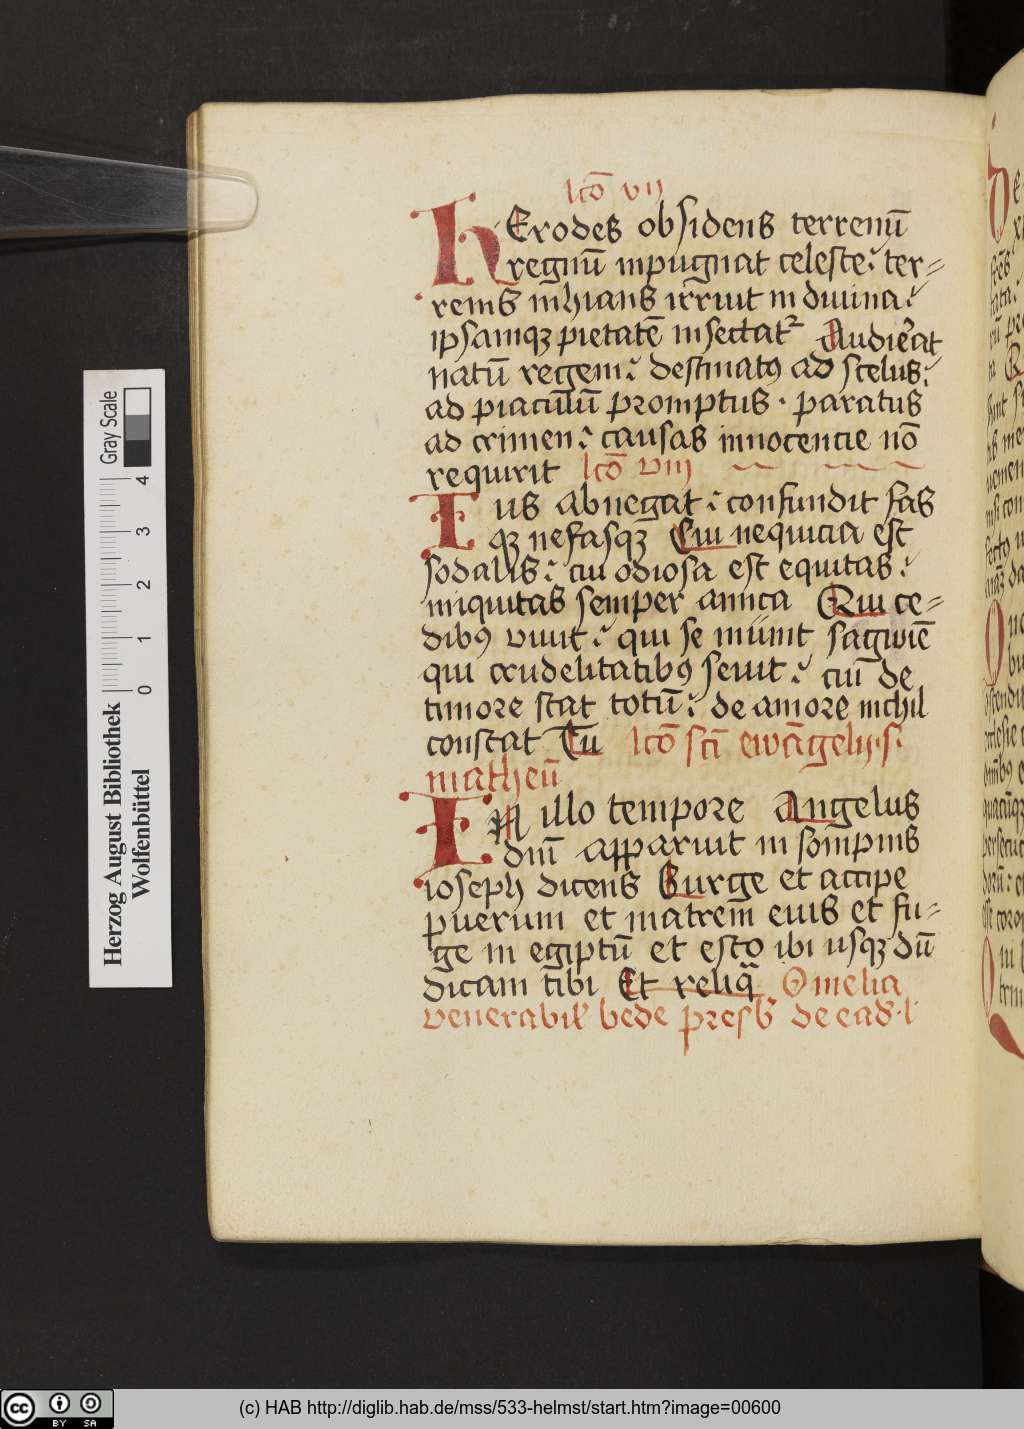 lcō vij
hErodes obsidens terrenū
regnū inpugnat celeste: ter=
renis inhians irruit in diuina:
ipsamqꝫ pietatē insectatᷣ Audierat
natū regem: destinatꝰ ad scelus:
ad piaculū promptus · paratus
ad crimen: causas innocencie nō
requirit lcō viij
Ius abnegat: confundit fas
qꝫ nefasqꝫ Cui nequicia est
sodalis: cui odiosa est equitas:
iniquitas semper amica Qui ce=
dibꝰ viuit: qui se munit sagwiē
qui crudelitatibꝰ seuit: cui de
timore stat totū: de amore nichil
constat Tu lcō scī ewāgelij · s ·
matheū
In illo tempore Angelus
dni apparuit in sompnis
ioseph dicens Surge et accipe
puerum et matrem eius et fu=
ge in egiptū et esto ibi usqꝫ dū
dicam tibi Et reliqa Omelia
venerabil bede presb de ead · l
Herzog August Bibliothek
Wolfenbüttel
Gray Scale
0 1 2 3 4
(c) HAB http://diglib.hab.de/mss/533-helmst/start.htm?image=00600
cc BY SA